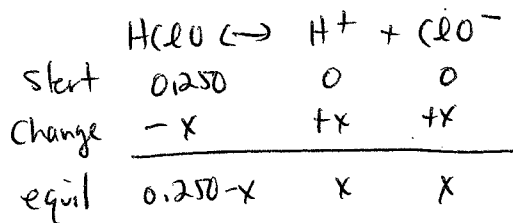 HClO ↔ H⁺ + ClO⁻
start 0.250 0 0
Change -x +x +x
equil 0.250-x x x